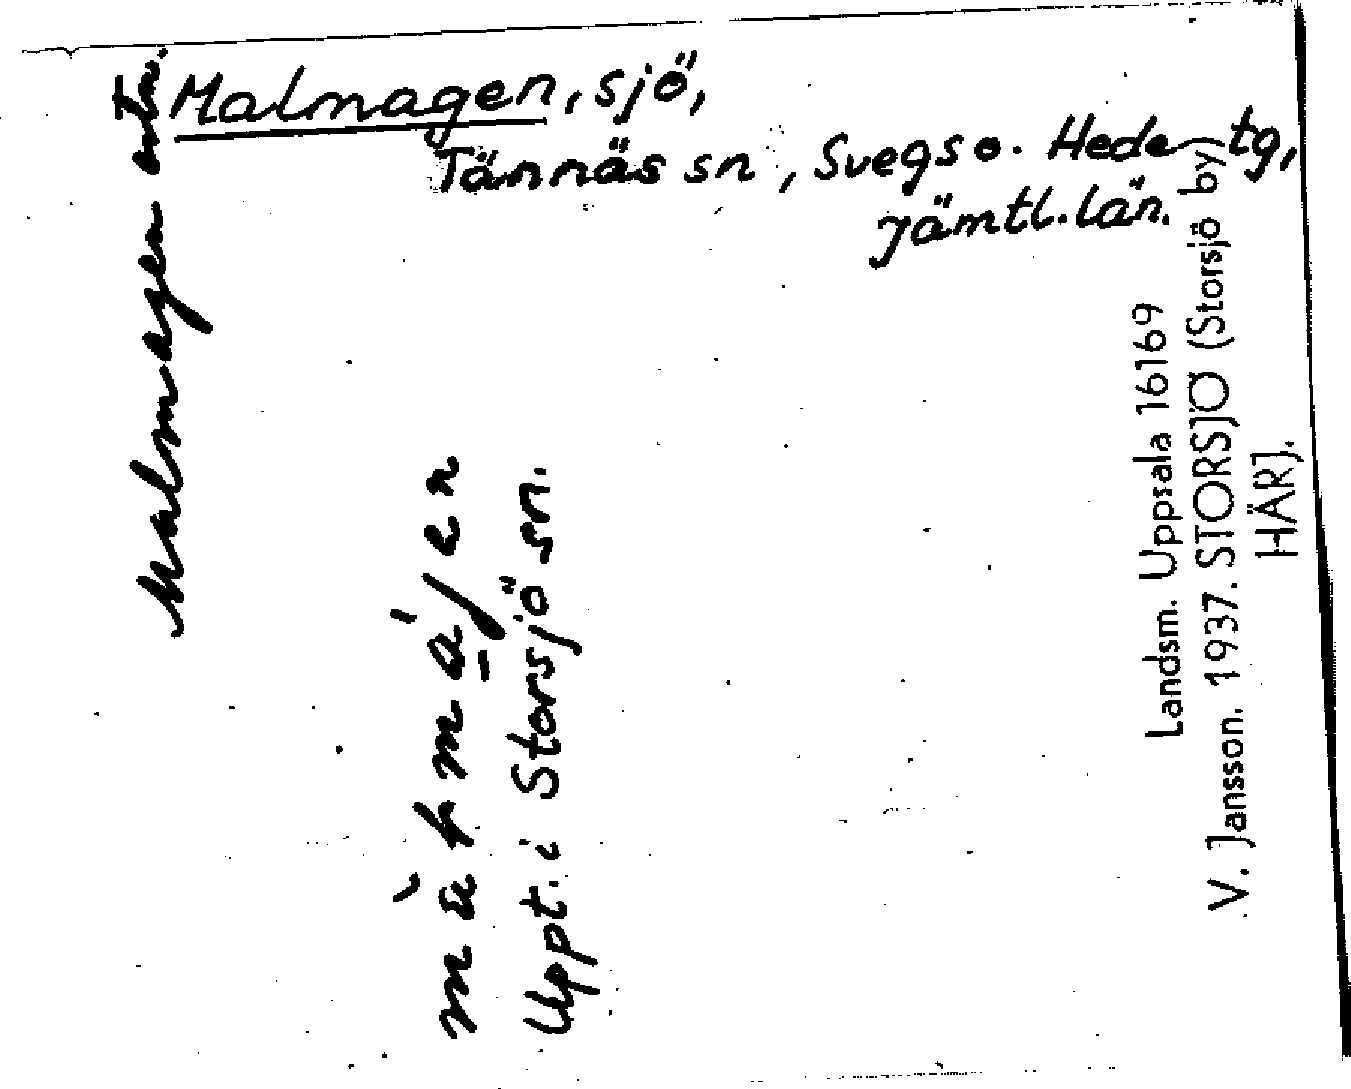 Malmagen, sjö,
Tännäs sn, Svegs o. Hede tg,
Jämtl. län.
Malmagen
Uppt. i Storsjö sn.
Landsm. Uppsala 16169
V. Jansson. 1937. STORSJÖ (Storsjö by)
HÄRJ.